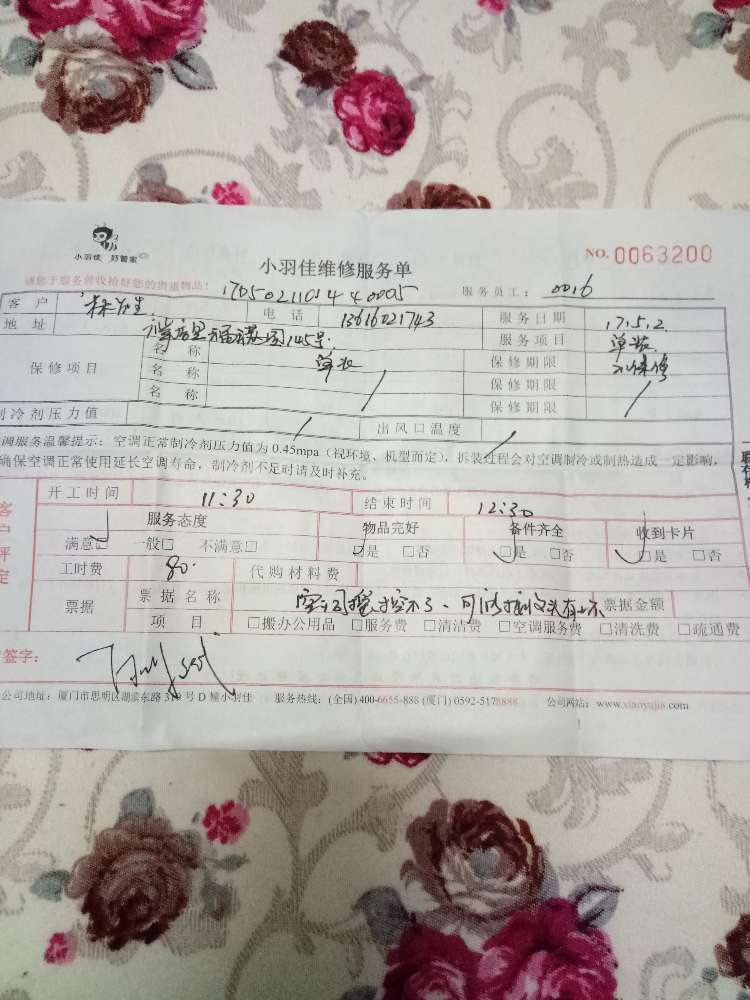 小羽佳 好管家
NO.0063200
小羽佳维修服务单
请您于服务前收拾好您的贵重物品!
服务员工: 0016
客户 电话 13616021743 服务日期 17.5.2
地址 145号 服务项目 单装
保修项目 名称 单装 保修期限
名称 保修期限
名称 保修期限
制冷剂压力值 出风口温度
调服务温馨提示:空调正常制冷剂压力值为0.45mpa(视环境、机型而定),拆装过程会对空调制冷或制热造成一定影响,
确保空调正常使用延长空调寿命,制冷剂不足时请及时补充。
客户评定
开工时间 11:30 结束时间 12:30
服务态度 物品完好 备件齐全 收到卡片
满意□ 一般□ 不满意□ □是 □否 □是 □否 □是 □否
工时费 80. 代购材料费
票据 票据名称 票据金额
项目 □搬办公用品 □服务费 □清洁费 □空调服务费 □清洗费 □疏通费
签字:
公司地址:厦门市思明区湖滨东路319号D幢小羽佳 服务热线:(全国)400-6655-888 (厦门) 0592-5178888 公司网站:www.xiaoyujia.com